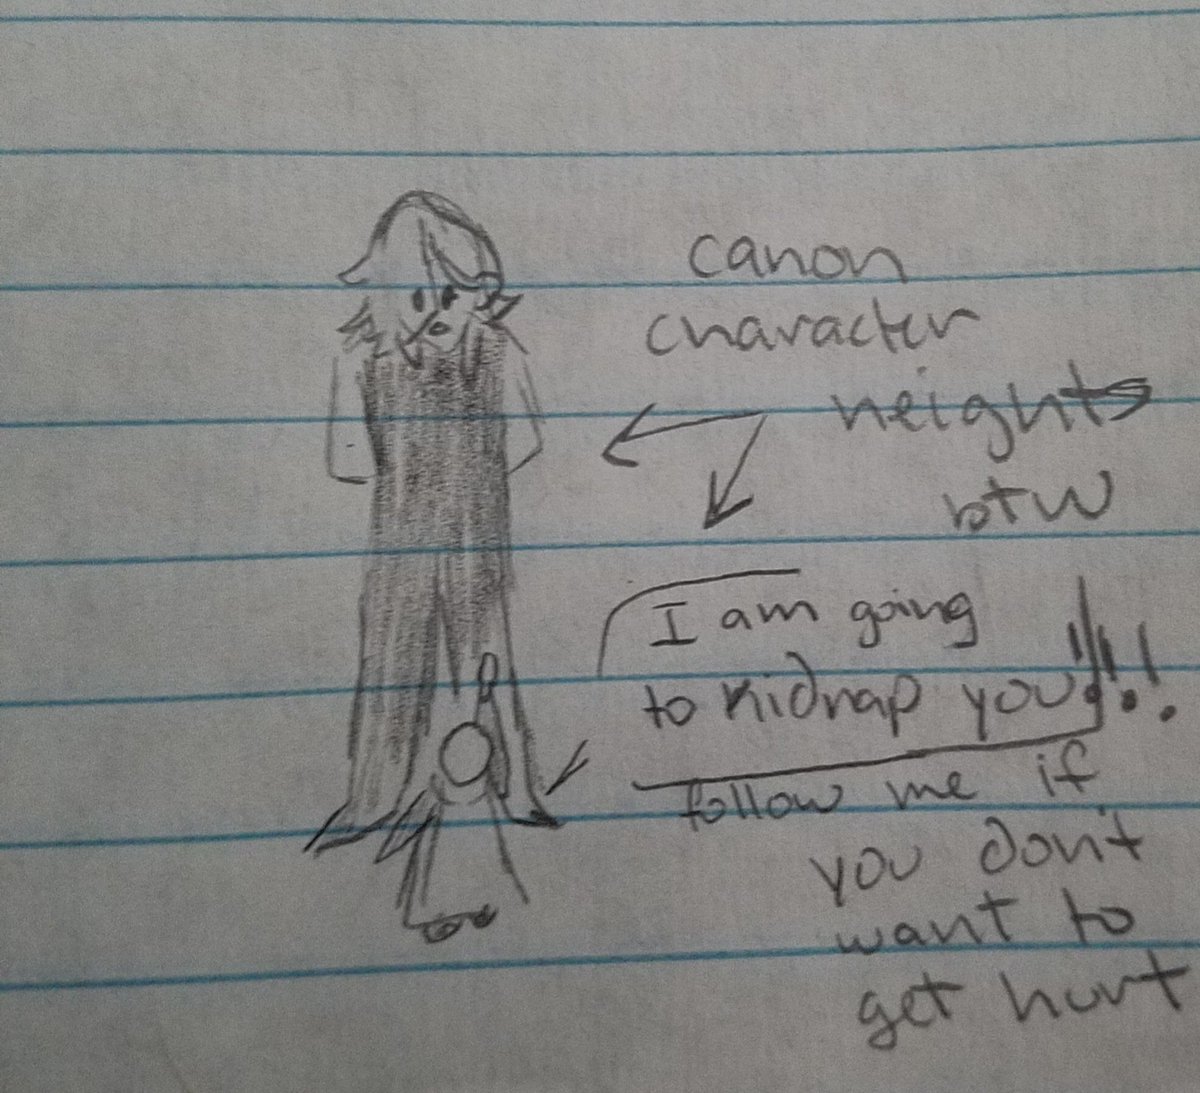 canon
character
heights
btw
I am going
to kidnap you!!!
follow me if
you don't
want to
get hurt